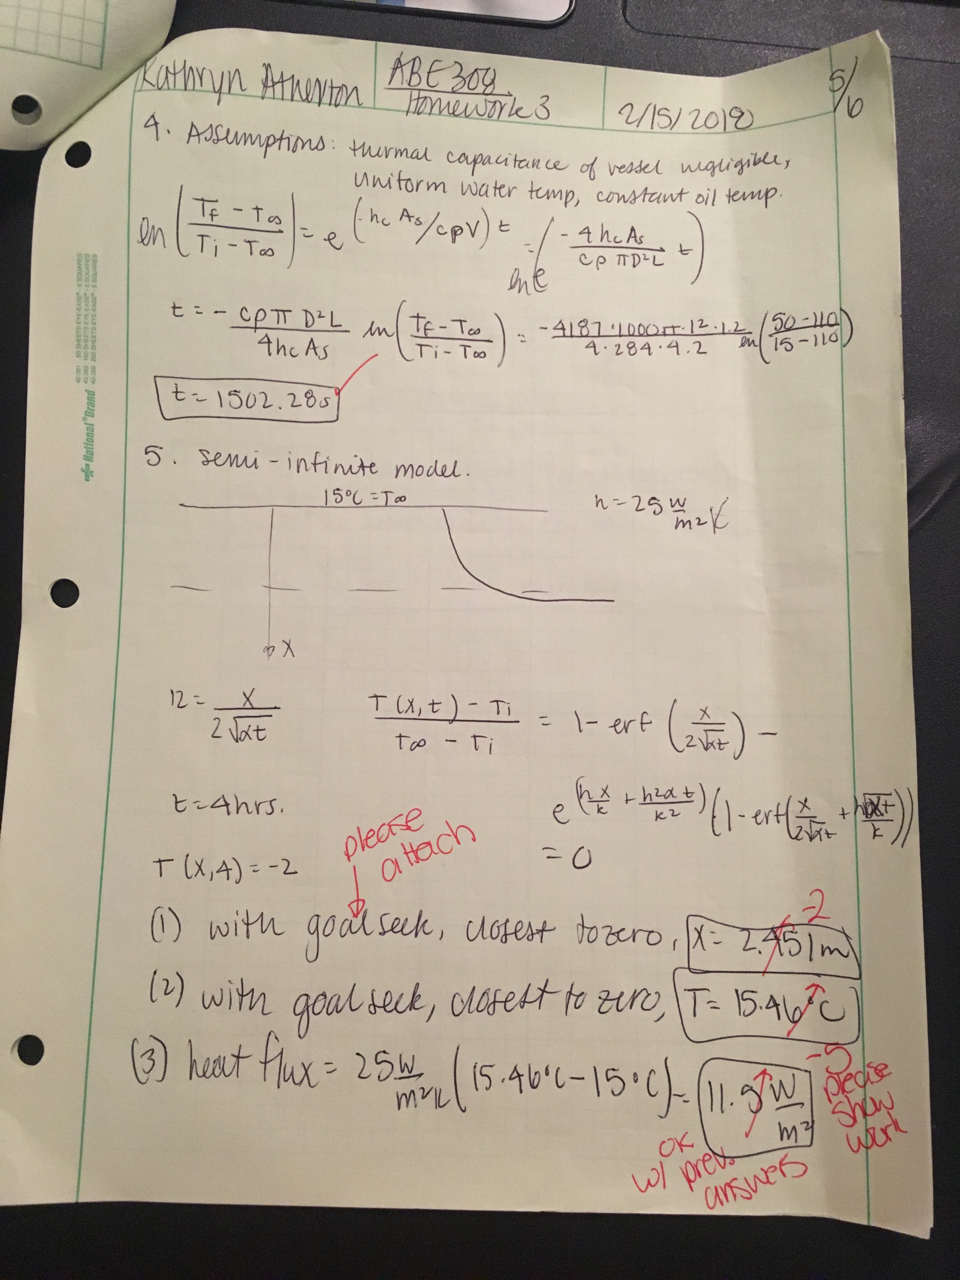 Kathryn Atherton
ABE 308
Homework 3
2/15/2018
5/6
4. Assumptions: thermal capacitance of vessel negligible,
uniform water temp, constant oil temp.
ln(Tf - T∞ / Ti - T∞) = e^(-hc As/cρV) t = ln e^(-4 hc As / cρ π D²L t)
t = - cρπ D²L / 4hc As ln(Tf - T∞ / Ti - T∞) = -4187·1000π·12·1.2 / 4·284·4.2 ln(50-110 / 15-110)
t = 1502.28s
5. Semi-infinite model.
15°C = T∞
h = 25 W/m²K
x
12 = x / 2√αt
T(x,t) - Ti / T∞ - Ti = 1 - erf(x / 2√αt) -
t = 4hrs.
e^(hx/k + h²αt/k²) (1-erf(x/2√αt + h√αt/k))
please
attach
T(x,4) = -2
= 0
(1) with goalseek, closest to zero, x = 2.451m
-2
(2) with goalseek, closest to zero, T = 15.46°C
(3) heat flux = 25 W/m²K (15.46°C - 15°C) = 11.5 W/m²
-5
please
show
work
ok
w/ prev.
answers
National® Brand